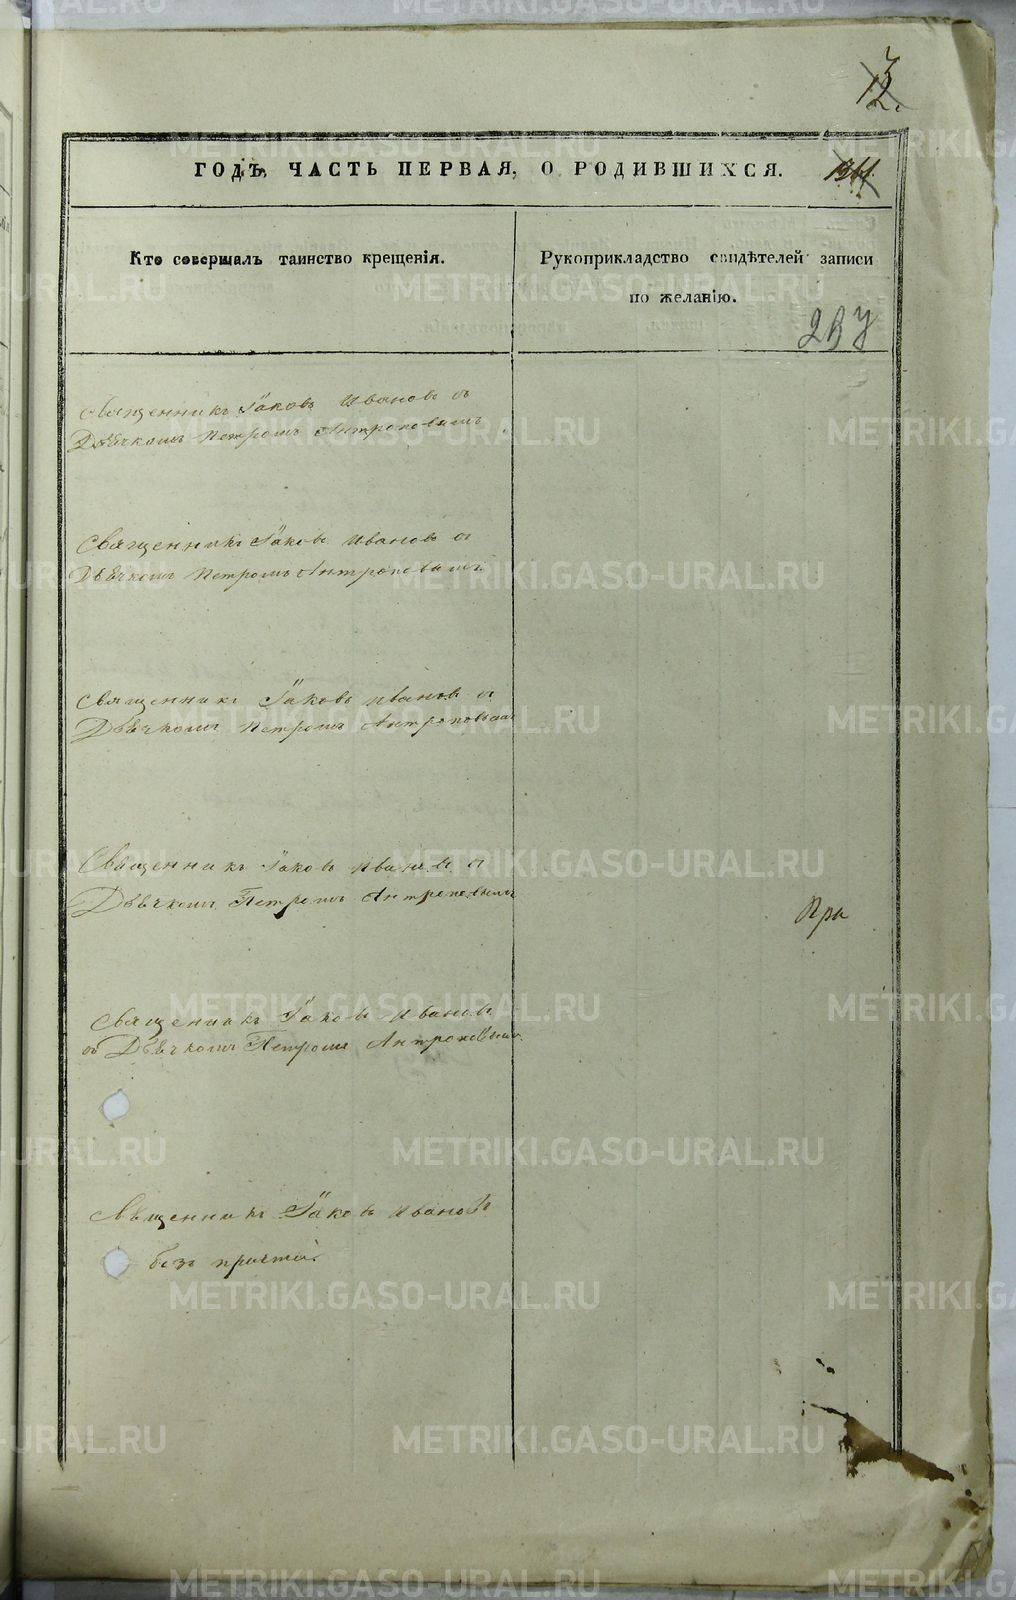 12.
ГОДЪ, ЧАСТЬ ПЕРВАЯ, О РОДИВШИХСЯ.
Кто совершалъ таинство крещенія.
Рукоприкладство свидѣтелей записи
по желанію.
Священникъ Іаковъ Ивановъ съ
Дьячкомъ Петромъ Антроповымъ.
Священникъ Іаковъ Ивановъ съ
Дьячкомъ Петромъ Антроповымъ.
Священникъ Іаковъ Ивановъ съ
Дьячкомъ Петромъ Антроповымъ
Священникъ Іаковъ Ивановъ съ
Дьячкомъ Петромъ Антроповымъ
При
Священникъ Іаковъ Ивановъ
съ Дьячкомъ Петромъ Антроповымъ.
Священникъ Іаковъ Ивановъ
безъ причта.
METRIKI.GASO-URAL.RU